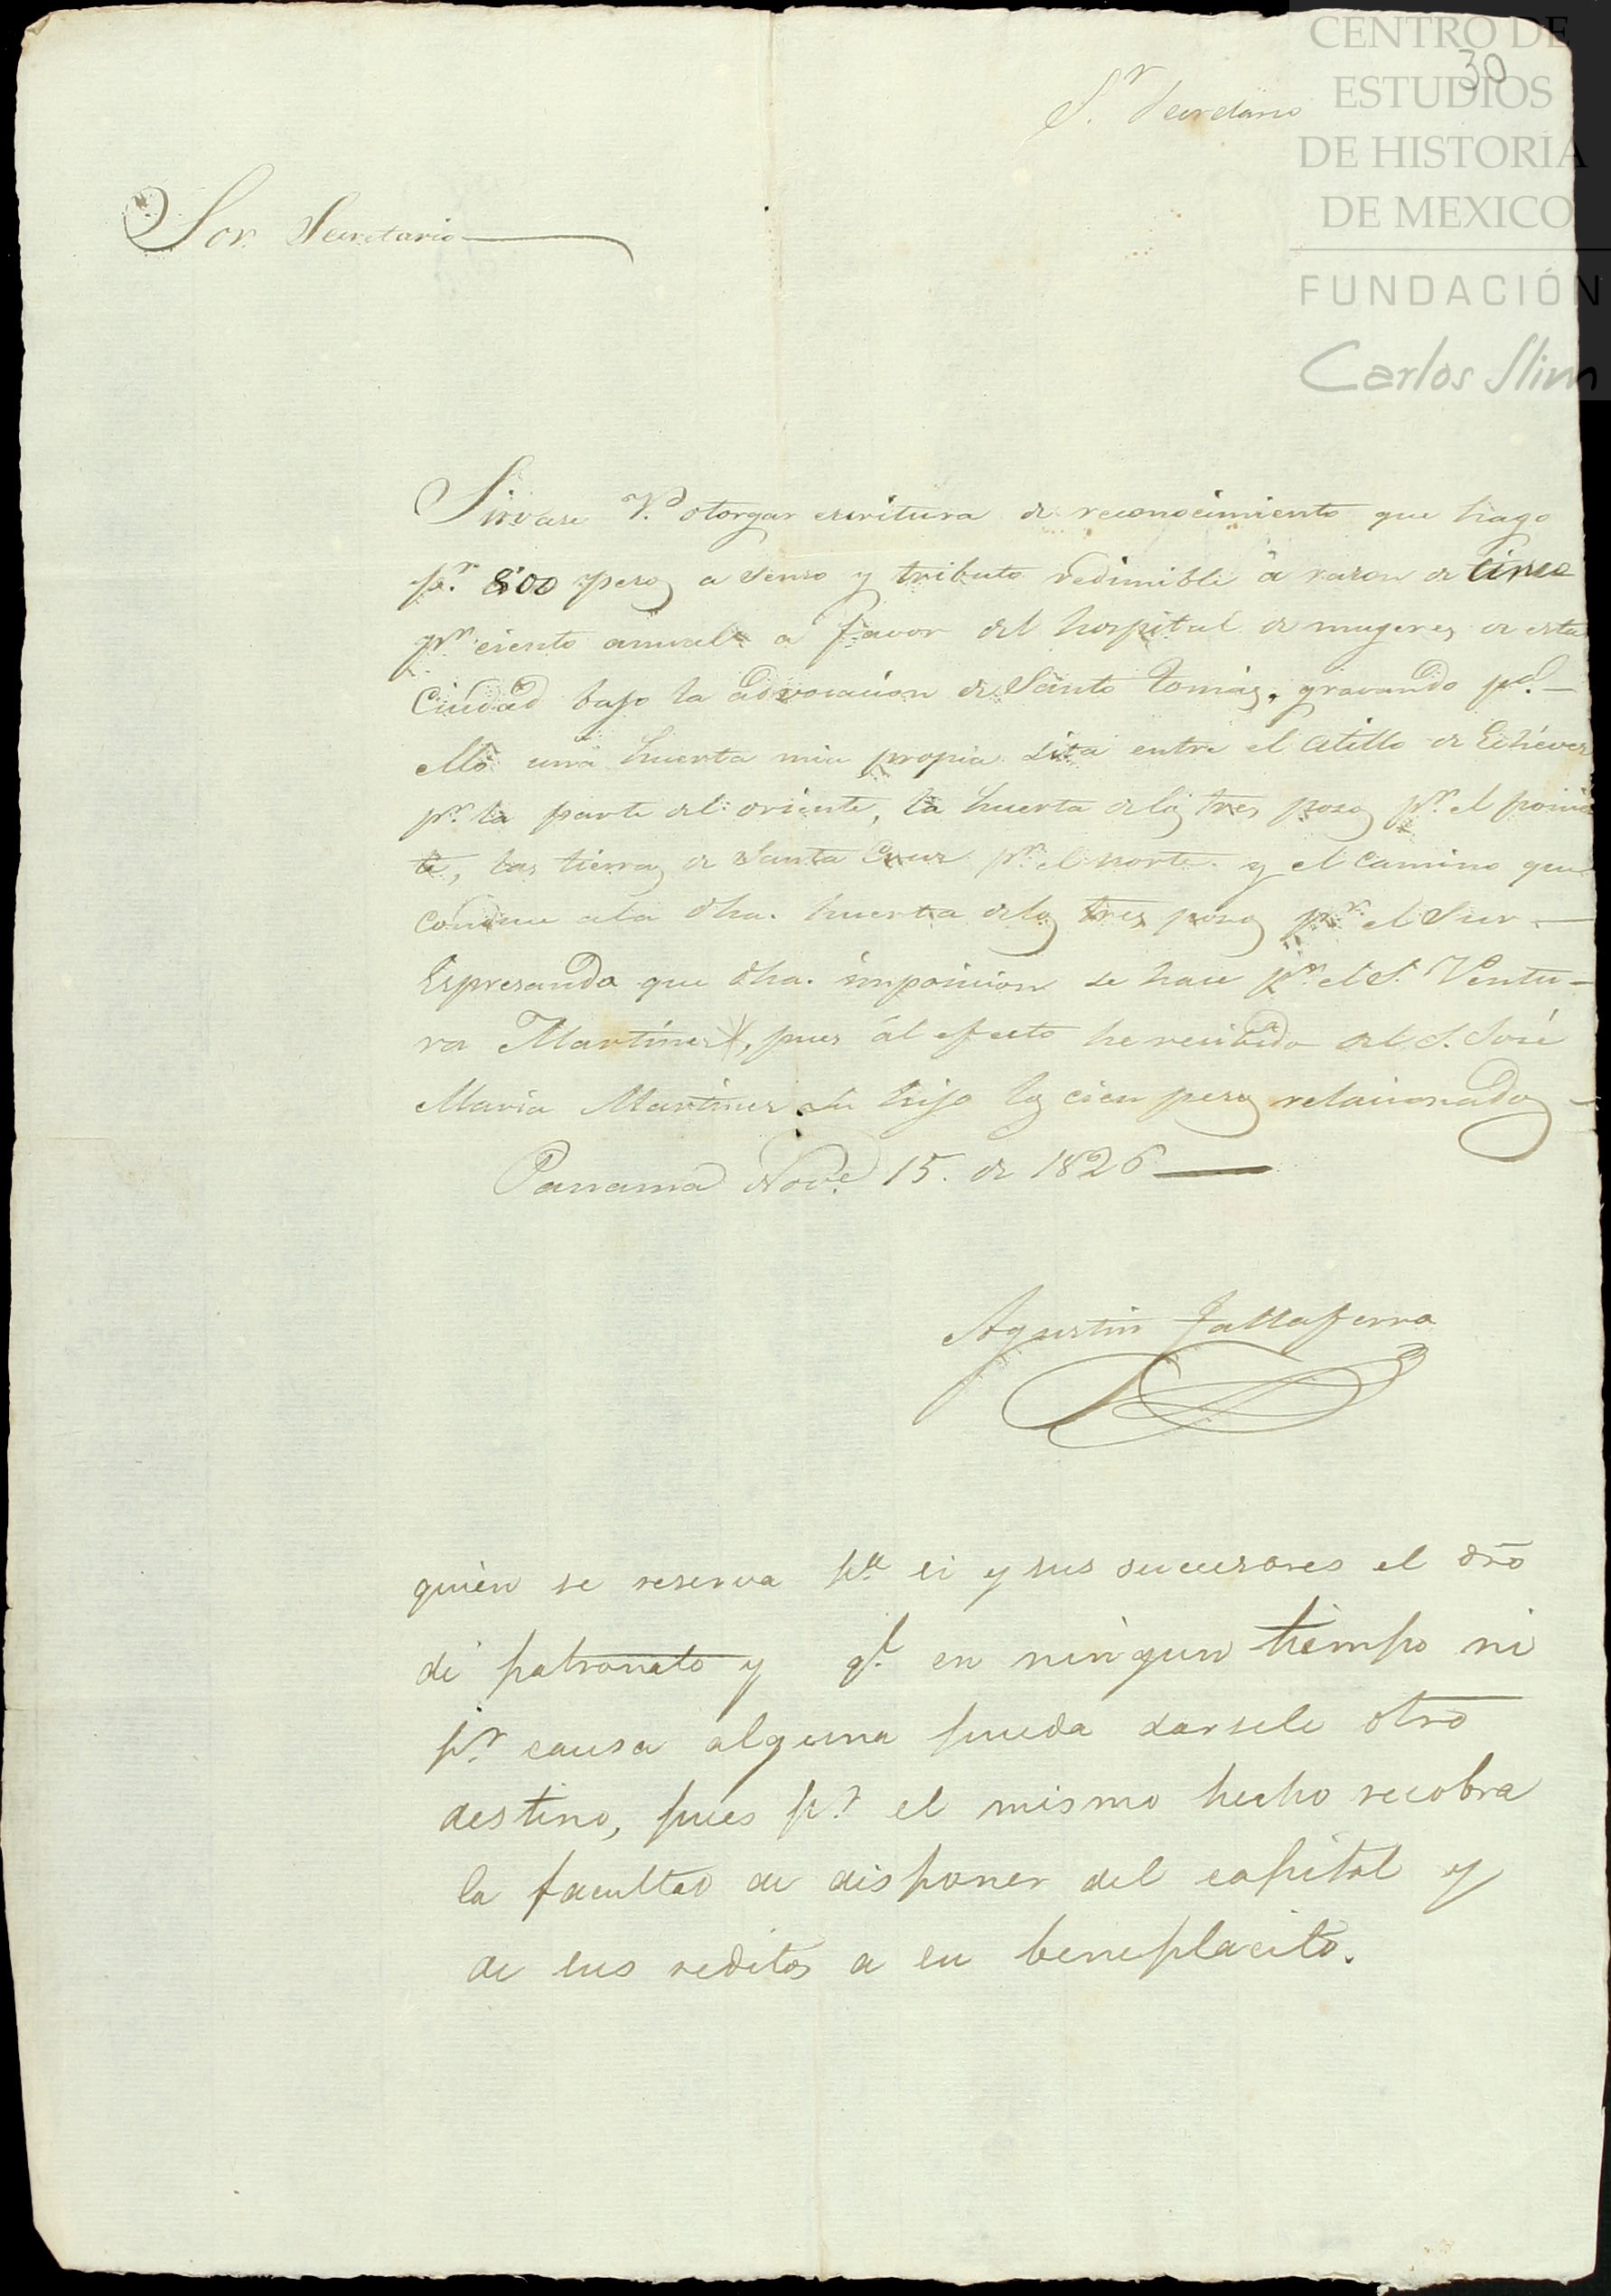 CENTRO DE
ESTUDIOS
DE HISTORIA
DE MEXICO
FUNDACIÓN
Carlos Slim
30
S.r Secretario
Sor. Secretario
Sirvase V.d otorgar escritura de reconocimiento que hago
p.r 800 pesos a senso y tributo redimible á rason de cinco
p.r ciento anual a favor del hospital de mugeres de esta
Ciudad bajo la advocacion de Santo Tomás, gravando p.a
ello una huerta mia propia sita entre el Atillo de
p.r la parte del oriente, la huerta de los tres posos p.r el ponien
te, las tierras de Santa Cruz p.r el norte y el camino que
conduce a la dha. huerta de los tres posos p.r el Sur
Espresando que dha. imposicion se hace p.r el S. Ventu-
ra Martines, pues al efecto he recibido del S. José
Maria Martines su hijo los cien pesos relacionados
Panamá Nov.e 15. de 1826
Agustin Tallaferro
quien se reserva p.a si y sus sucesores el dro
de patronato y q.e en ningun tiempo ni
p.r causa alguna pueda darsele otro
destino, pues p.r el mismo hecho recobra
la facultad de disponer del capital y
de sus reditos a su beneplacito.